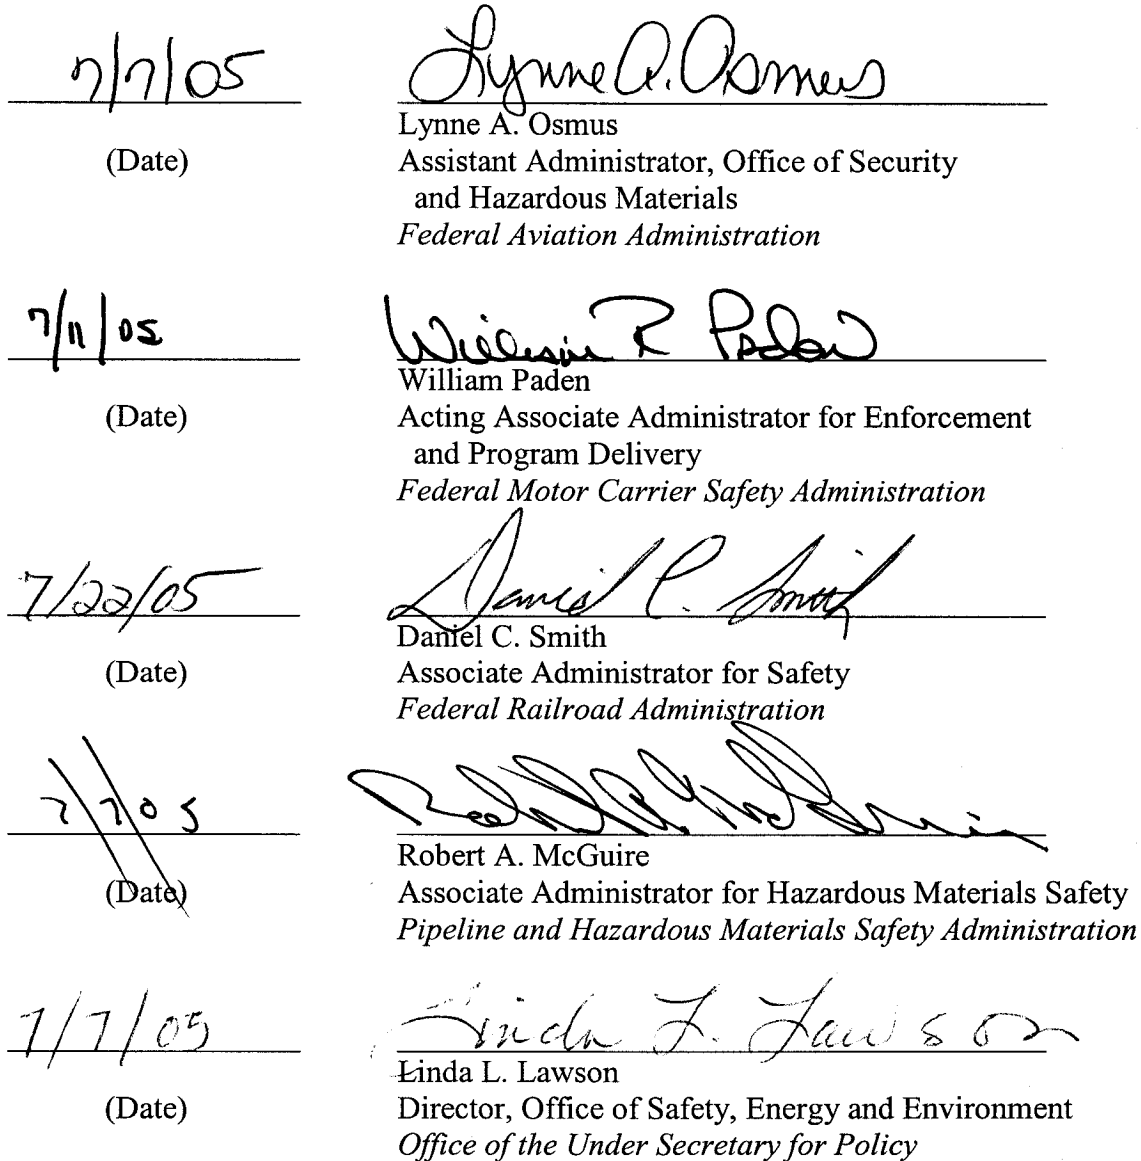 7/7/05 Lynne A. Osmus
Lynne A. Osmus
(Date) Assistant Administrator, Office of Security
and Hazardous Materials
Federal Aviation Administration
7/11/05 William R Paden
William Paden
(Date) Acting Associate Administrator for Enforcement
and Program Delivery
Federal Motor Carrier Safety Administration
7/22/05 Daniel C. Smith
Daniel C. Smith
(Date) Associate Administrator for Safety
Federal Railroad Administration
7\7\05 Robert A. McGuire
Robert A. McGuire
(Date) Associate Administrator for Hazardous Materials Safety
Pipeline and Hazardous Materials Safety Administration
7/7/05 Linda L. Lawson
Linda L. Lawson
(Date) Director, Office of Safety, Energy and Environment
Office of the Under Secretary for Policy